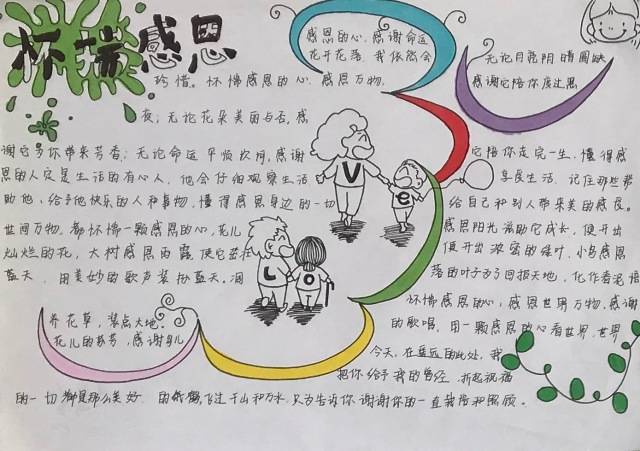 怀揣感恩
感恩的心,感谢命运
花开花落,我依然会
珍惜。怀惴感恩的心,感恩万物,
无论月亮阴晴圆缺
感谢它陪你度过黑
夜;无论花朵美丽与否,感
谢它为你带来芳香;无论命运平顺坎坷,感谢
它陪你走完一生。懂得感
恩的人定是生活的有心人,他会仔细观察生活
享受生活,记住那些帮
助他、给予他快乐的人和事物,懂得感恩身边的一切
给自己和别人带来美的感受。
世间万物,都怀惴一颗感恩的心,花儿
感恩阳光滋助它成长,便开出
灿烂的花,大树感恩雨露使它茁壮
便开出浓密的绿叶,小鸟感恩
蓝天,用美妙的歌声装扮蓝天。
落的叶子为了回报天地,化作春泥培
养花草,装点大地。
怀惴感恩的心,感恩世界万物,感谢
花儿的芬芳,感谢鸟儿
的歌唱,用一颗感恩的心看世界,世界
今天,在遥远的此处,我
把你给予我的曾经,折起祝福
的一切都是那么美好
的纸鹤,飞过千山和万水,只为告诉你:谢谢你的一直栽培和照顾。
L
O
V
e